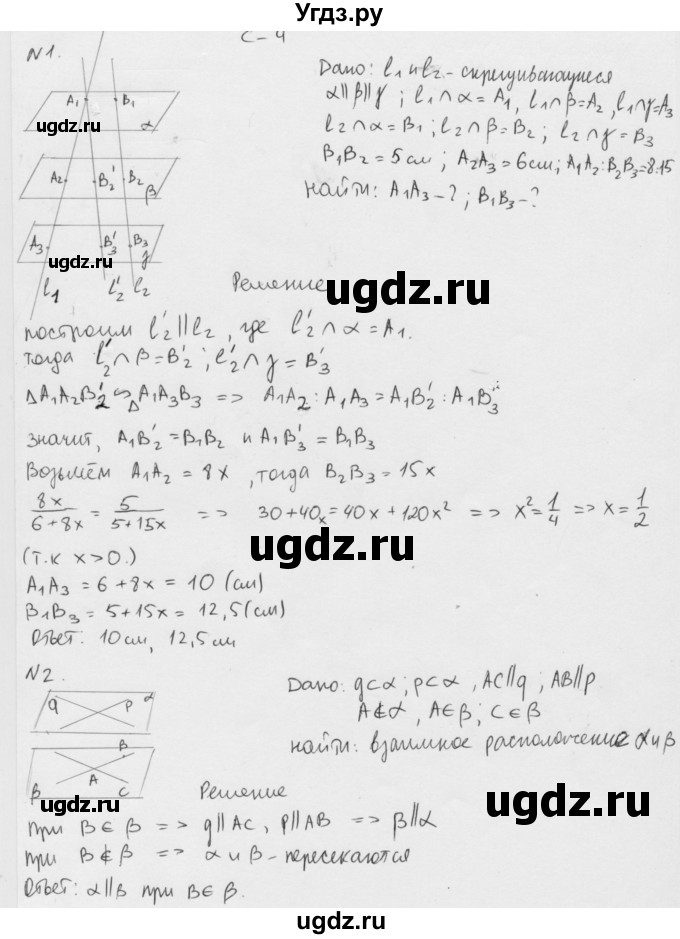 Угдз.ру
С-4
N1.
Дано: l1 и l2 - скрещивающиеся
α||β||γ ; l1∩α=A1, l1∩β=A2, l1∩γ=A3
l2∩α=B1; l2∩β=B2; l2∩γ=B3
B1B2=5см; A2A3=6см; A1A2:B2B3=8:15
Найти: A1A3-?; B1B3-?
A1 B1 α
ugdz.ru
A2 B2' B2 β
A3 B3' B3 γ
ugdz.ru
l1 l2' l2
Решение
ugdz.ru
построим l2'||l2, где l2'∩α=A1.
тогда l2'∩β=B2'; l2'∩γ=B3'
ΔA1A2B2' ∽ ΔA1A3B3 => A1A2:A1A3=A1B2':A1B3'
значит, A1B2'=B1B2 и A1B3'=B1B3
Возьмём A1A2=8x, тогда B2B3=15x
8x/(6+8x) = 5/(5+15x) => 30+40x=40x+120x² => x²=1/4 => x=1/2
ugdz.ru
(т.к x>0.)
A1A3=6+8x=10 (см)
B1B3=5+15x=12,5(см)
Ответ: 10см, 12,5см
ugdz.ru
N2.
Дано: q⊂α; p⊂α, AC||q; AB||p
A∉α, A∈β; C∈β
Найти: взаимное расположение α и β
q p α
B
A
β C
ugdz.ru
Решение
ugdz.ru
при B∈β => q||AC, p||AB => β||α
при B∉β => α и β - пересекаются
Ответ: α||β при B∈β.
ugdz.ru
ugdz.ru